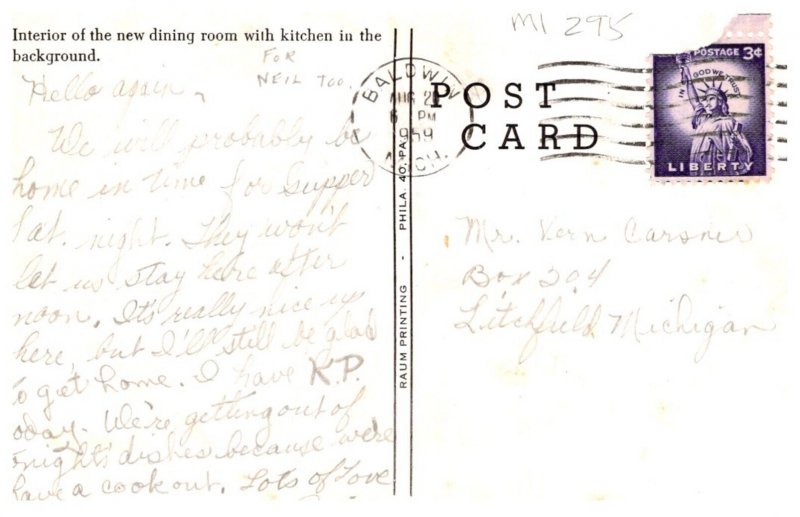 Interior of the new dining room with kitchen in the
background.
FOR
NEIL TOO
Hello again,
We will probably be
home in time for supper
Sat. night. They won't
let us stay here after
noon. It's really nice up
here, but I'll still be glad
to get home. I have K.P.
today. We're getting out of
tonight's dishes because we're
have a cook out. Lots of Love
RAUM PRINTING - PHILA. 40, PA.
MI 295
BALDWIN
AUG 2
PM
1959
MICH.
POST
CARD
POSTAGE 3¢
IN GOD WE TRUST
LIBERTY
Mr. Vern Carsner
Box 204
Litchfield Michigan